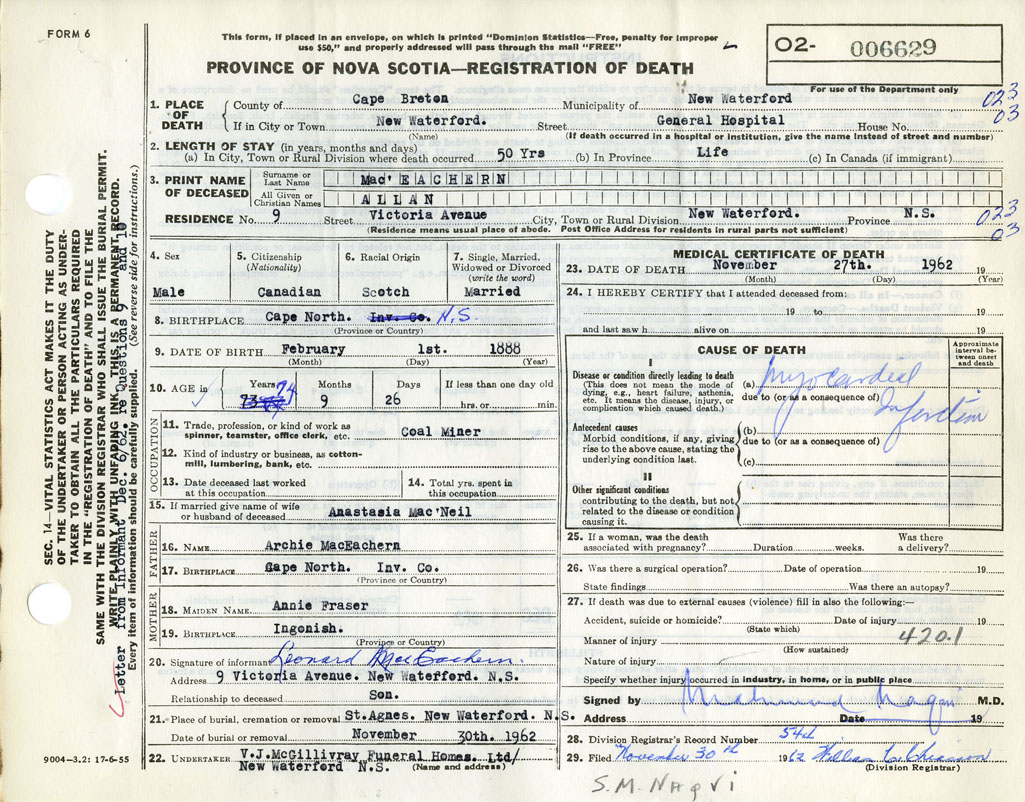 FORM 6
This form, if placed in an envelope, on which is printed "Dominion Statistics—Free, penalty for improper
use $50," and properly addressed will pass through the mail "FREE"
PROVINCE OF NOVA SCOTIA—REGISTRATION OF DEATH
O2- 006629
For use of the Department only
1. PLACE OF DEATH { County of Cape Breton Municipality of New Waterford 023 03
If in City or Town New Waterford. Street General Hospital House No.
(Name) (If death occurred in a hospital or institution, give the name instead of street and number)
2. LENGTH OF STAY (in years, months and days)
(a) In City, Town or Rural Division where death occurred 50 Yrs (b) In Province Life (c) In Canada (if immigrant)
3. PRINT NAME OF DECEASED
Surname or Last Name Mac'EACHERN
All Given or Christian Names ALLAN
RESIDENCE No. 9 Street Victoria Avenue City, Town or Rural Division New Waterford. Province N.S. 023 03
(Residence means usual place of abode. Post Office Address for residents in rural parts not sufficient)
4. Sex
Male
5. Citizenship (Nationality)
Canadian
6. Racial Origin
Scotch
7. Single, Married, Widowed or Divorced (write the word)
Married
8. BIRTHPLACE Cape North. Inv. Co. N.S.
(Province or Country)
9. DATE OF BIRTH February 1st. 1888
(Month) (Day) (Year)
10. AGE in Years Months Days If less than one day old
73 74 9 26 hrs. or min.
OCCUPATION
11. Trade, profession, or kind of work as spinner, teamster, office clerk, etc. Coal Miner
12. Kind of industry or business, as cotton-mill, lumbering, bank, etc.
13. Date deceased last worked at this occupation
14. Total yrs. spent in this occupation
15. If married give name of wife or husband of deceased Anastasia Mac'Neil
FATHER
16. NAME Archie MacEachern
17. BIRTHPLACE Cape North. Inv. Co.
(Province or Country)
MOTHER
18. MAIDEN NAME Annie Fraser
19. BIRTHPLACE Ingonish.
(Province or Country)
20. Signature of informant Leonard MacEachern.
Address 9 Victoria Avenue. New Waterford. N.S.
Relationship to deceased Son.
21. Place of burial, cremation or removal St.Agnes. New Waterford. N.S.
Date of burial or removal November 30th. 1962
22. UNDERTAKER V.J.McGillivray Funeral Homes. Ltd/
New Waterford N.S. (Name and address)
MEDICAL CERTIFICATE OF DEATH
23. DATE OF DEATH November 27th. 1962 19
(Month) (Day) (Year)
24. I HEREBY CERTIFY that I attended deceased from:
19 to 19
and last saw h alive on 19
CAUSE OF DEATH
Approximate interval between onset and death
I
Disease or condition directly leading to death
(This does not mean the mode of dying, e.g., heart failure, asthenia, etc. It means the disease, injury, or complication which caused death.)
(a) Myocardial
due to (or as a consequence of) Infarction
Antecedent causes
Morbid conditions, if any, giving rise to the above cause, stating the underlying condition last.
(b)
due to (or as a consequence of)
(c)
II
Other significant conditions
contributing to the death, but not related to the disease or condition causing it.
25. If a woman, was the death associated with pregnancy? Duration weeks. Was there a delivery?
26. Was there a surgical operation? Date of operation 19
State findings Was there an autopsy?
27. If death was due to external causes (violence) fill in also the following:—
Accident, suicide or homicide? Date of injury 19
(State which)
Manner of injury 420.1
(How sustained)
Nature of injury
Specify whether injury occurred in industry, in home, or in public place
Signed by Mahmood Naqvi M.D.
Address Date 19
28. Division Registrar's Record Number 54th
29. Filed November 30th 1962 William
(Division Registrar)
S.M. Naqvi
SEC. 14.—VITAL STATISTICS ACT MAKES IT THE DUTY
OF THE UNDERTAKER OR PERSON ACTING AS UNDER-
TAKER TO OBTAIN ALL THE PARTICULARS REQUIRED
IN THE "REGISTRATION OF DEATH" AND TO FILE THE
SAME WITH THE DIVISION REGISTRAR WHO SHALL ISSUE THE BURIAL PERMIT.
WRITE PLAINLY WITH UNFADING INK. THIS IS A PERMANENT RECORD.
Letter from informant Dec. 6/62. re Questions 9 and 10
Every item of information should be carefully supplied. (See reverse side for instructions.)
9004-3.2: 17-6-55